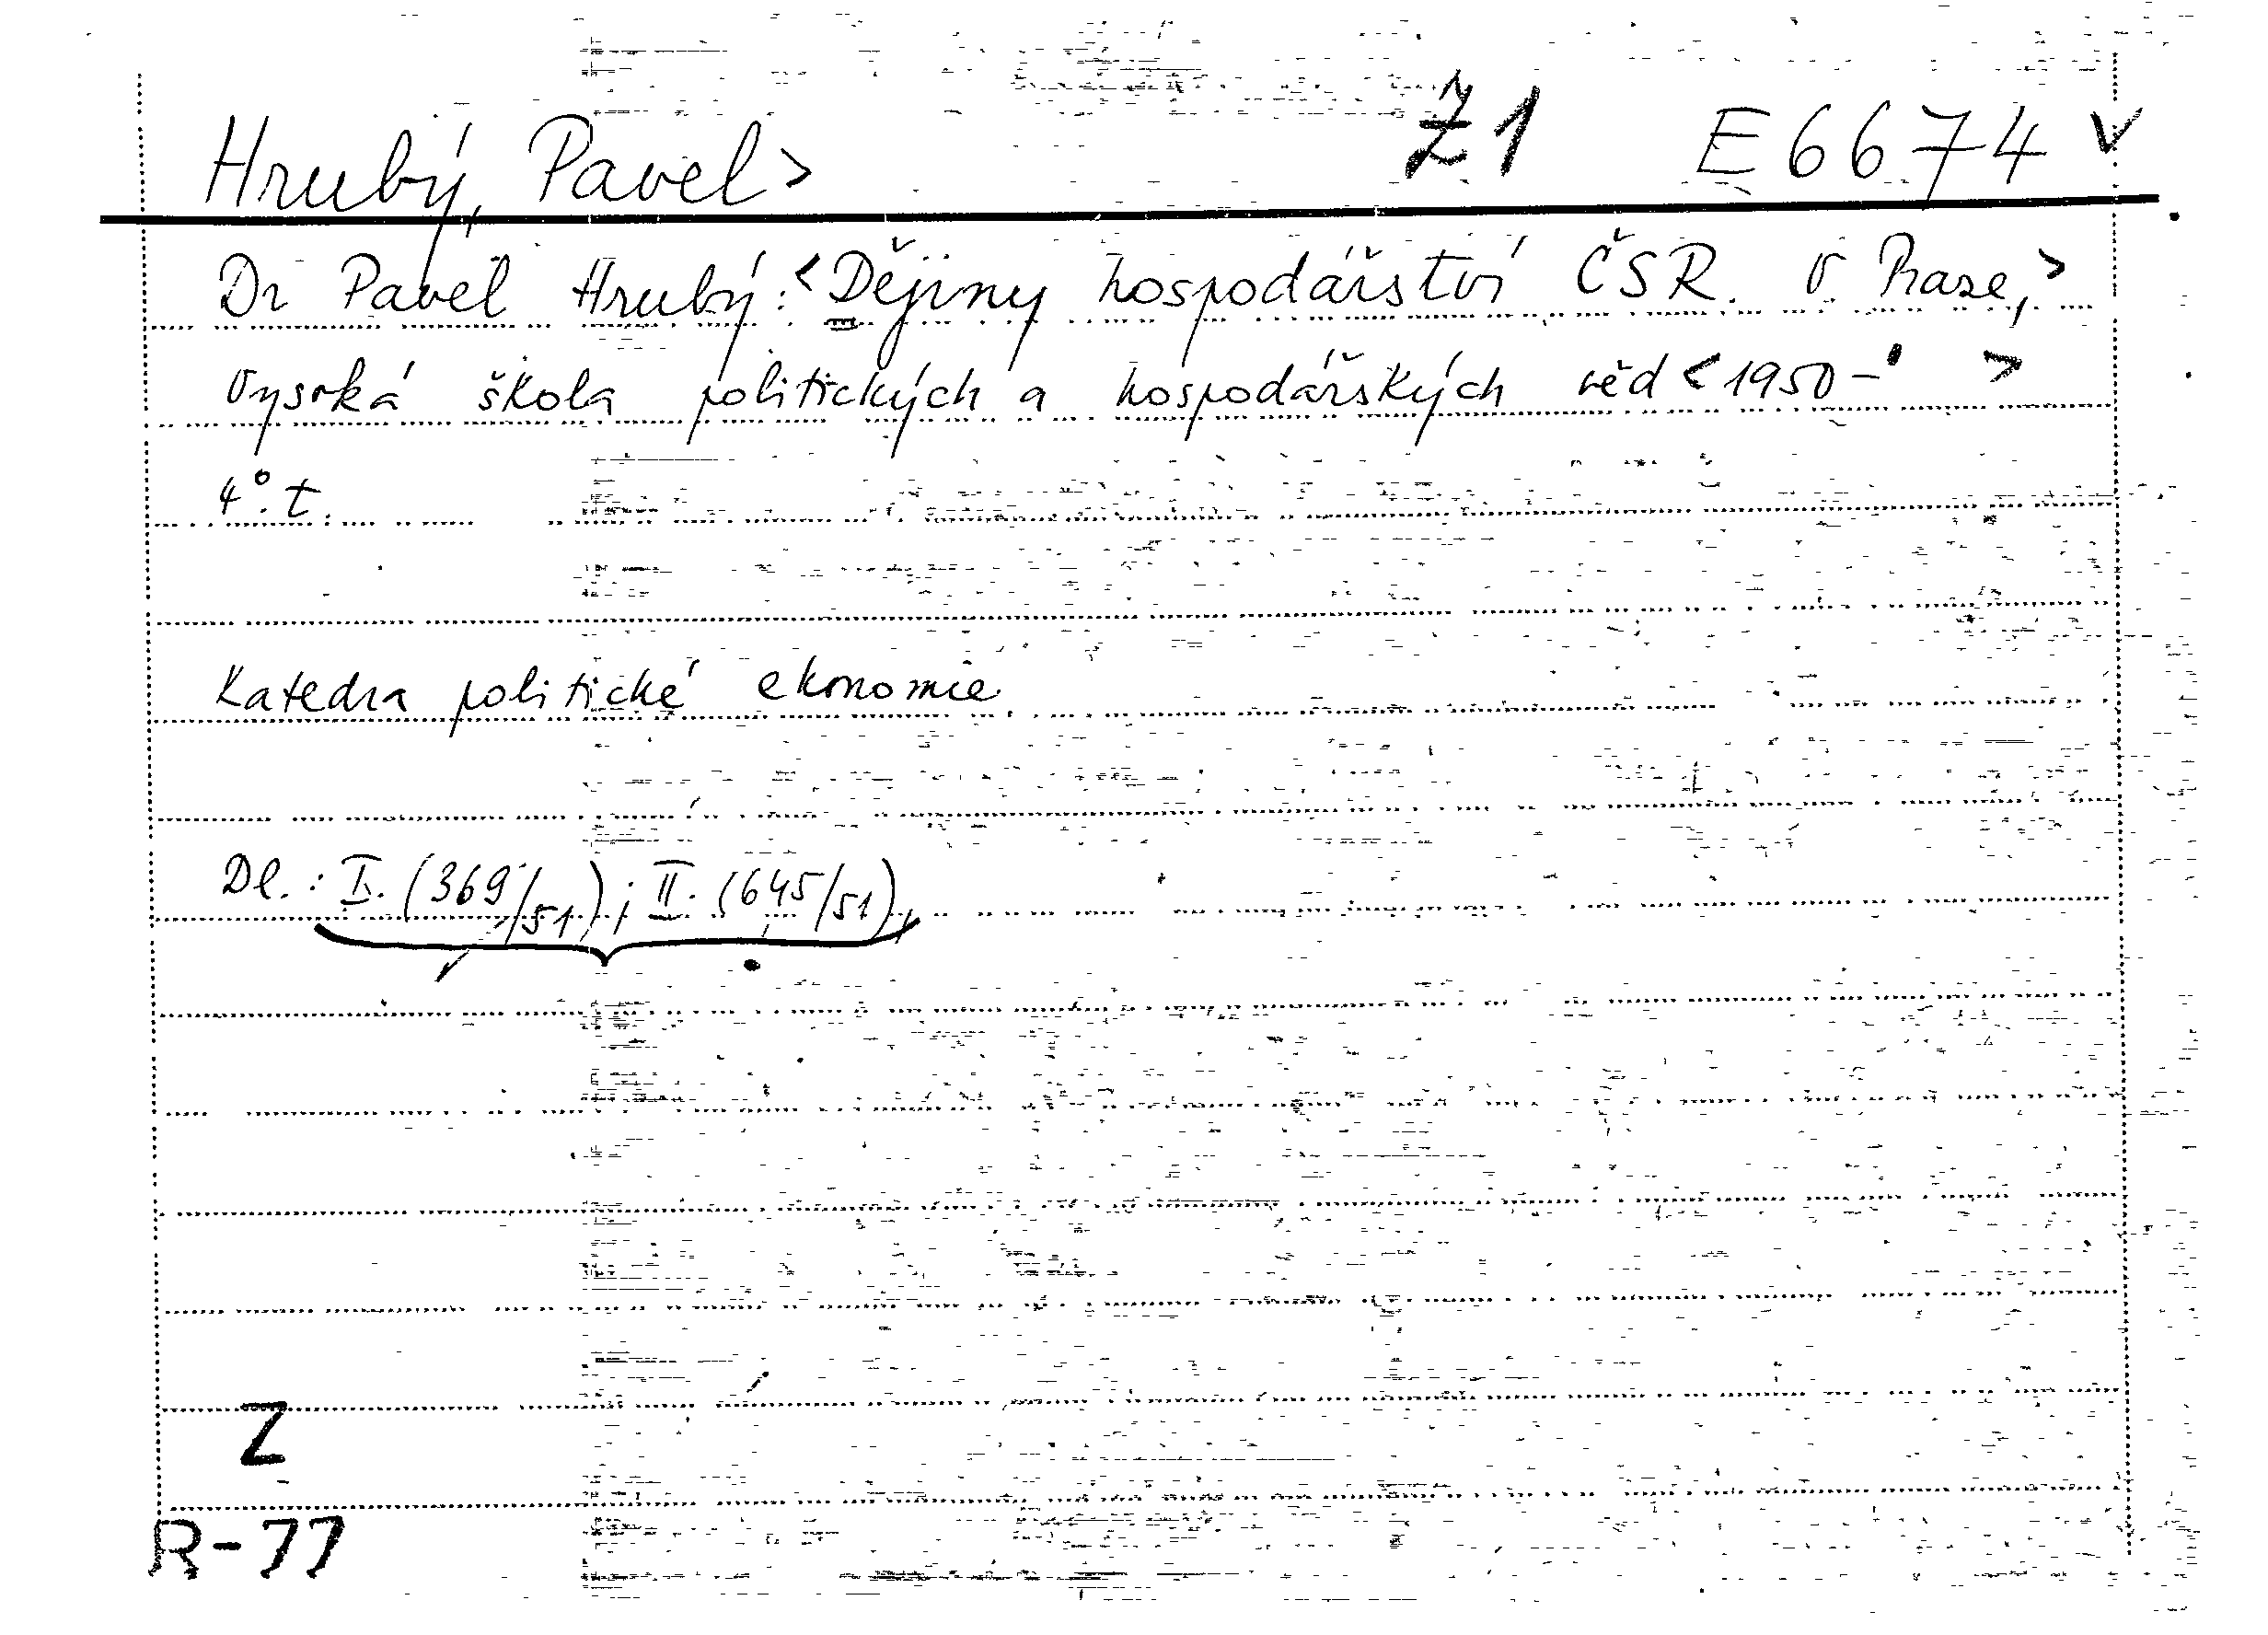 Hrubý, Pavel> Ž1 E6674 v
Dr Pavel Hrubý: <Dějiny hospodářství ČSR. V Praze,>
Vysoká škola politických a hospodářských věd <1950- >
4°. t.
Katedra politické ekonomie.
Dl.: I. (369/51); II. (645/51),
Z
R-77